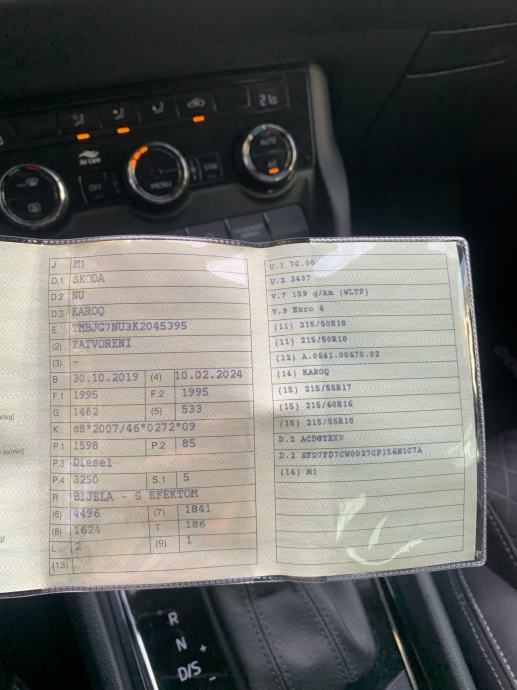 210
AUTO
Air Care
OFF
SYNC
MENU
A/C
J M1
D.1 ŠKODA
D.2 NU
D.3 KAROQ
E TMBJG7NU3K2045395
(2) ZATVORENI
(3) -
B 30.10.2019 (4) 10.02.2024
F.1 1995 F.2 1995
G 1462 (5) 533
K e8*2007/46*0272*09
P.1 1598 P.2 85
P.3 Diesel
P.4 3250 S.1 5
R BIJELA - S EFEKTOM
(6) 4496 (7) 1841
(8) 1624 T 186
L 2 (9) 1
(13)
U.1 70.00
U.2 2437
V.7 159 g/km (WLTP)
V.9 Euro 6
(11) 215/50R18
(11) 215/50R18
(12) A.0641.00670.02
(14) KAROQ
(15) 215/55R17
(15) 215/60R16
(15) 215/55R18
D.2 ACDGTZX0
D.2 NFD7FD7CW0027CP156N1C7A
(16) M1
/kg]
R
N +
D/S -